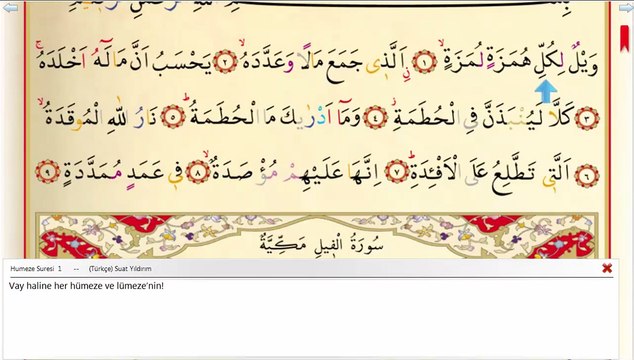 وَيْلٌ لِكُلِّ هُمَزَةٍ لُمَزَةٍۙ ﴿١﴾ اَلَّذ۪ي جَمَعَ مَالًا وَعَدَّدَهُۙ ﴿٢﴾ يَحْسَبُ اَنَّ مَالَهُٓ اَخْلَدَهُۚ
﴿٣﴾ كَلَّا لَيُنْبَذَنَّ فِي الْحُطَمَةِۘ ﴿٤﴾ وَمَٓا اَدْرٰيكَ مَا الْحُطَمَةُۜ ﴿٥﴾ نَارُ اللّٰهِ الْمُوقَدَةُۙ
﴿٦﴾ اَلَّت۪ي تَطَّلِعُ عَلَى الْاَفْـِٔدَةِۜ ﴿٧﴾ اِنَّهَا عَلَيْهِمْ مُؤْصَدَةٌۙ ﴿٨﴾ ف۪ي عَمَدٍ مُمَدَّدَةٍ ﴿٩﴾
سُورَةُ الْف۪يلِ مَكِّيَّةٌ
Humeze Suresi 1 -- (Türkçe) Suat Yıldırım
Vay haline her hümeze ve lümeze'nin!